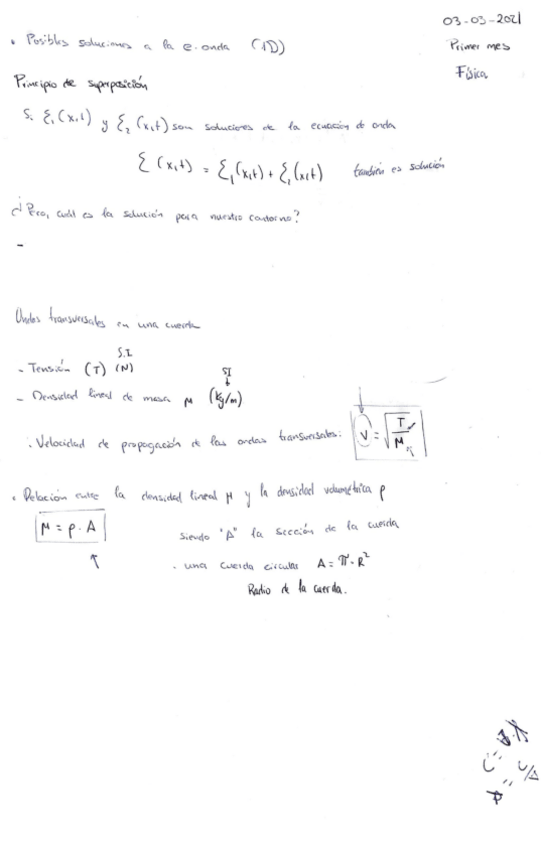 03-03-2021
• Posibles soluciones a la e. onda (1D)
Primer mes
Física
Principio de superposición
Si ξ₁(x,t) y ξ₂(x,t) son soluciones de la ecuación de onda
ξ(x,t) = ξ₁(x,t) + ξ₂(x,t) también es solución
¿Pero, cuál es la solución para nuestro contorno?
-
Ondas transversales en una cuerda
S.I
- Tensión (T) (N)
SI
- Densidad lineal de masa μ (kg/m)
· Velocidad de propagación de las ondas transversales: v = √(T/μ)
• Relación entre la densidad lineal μ y la densidad volumétrica ρ
μ = ρ · A
siendo "A" la sección de la cuerda
· una cuerda circular A = π · R²
Radio de la cuerda.